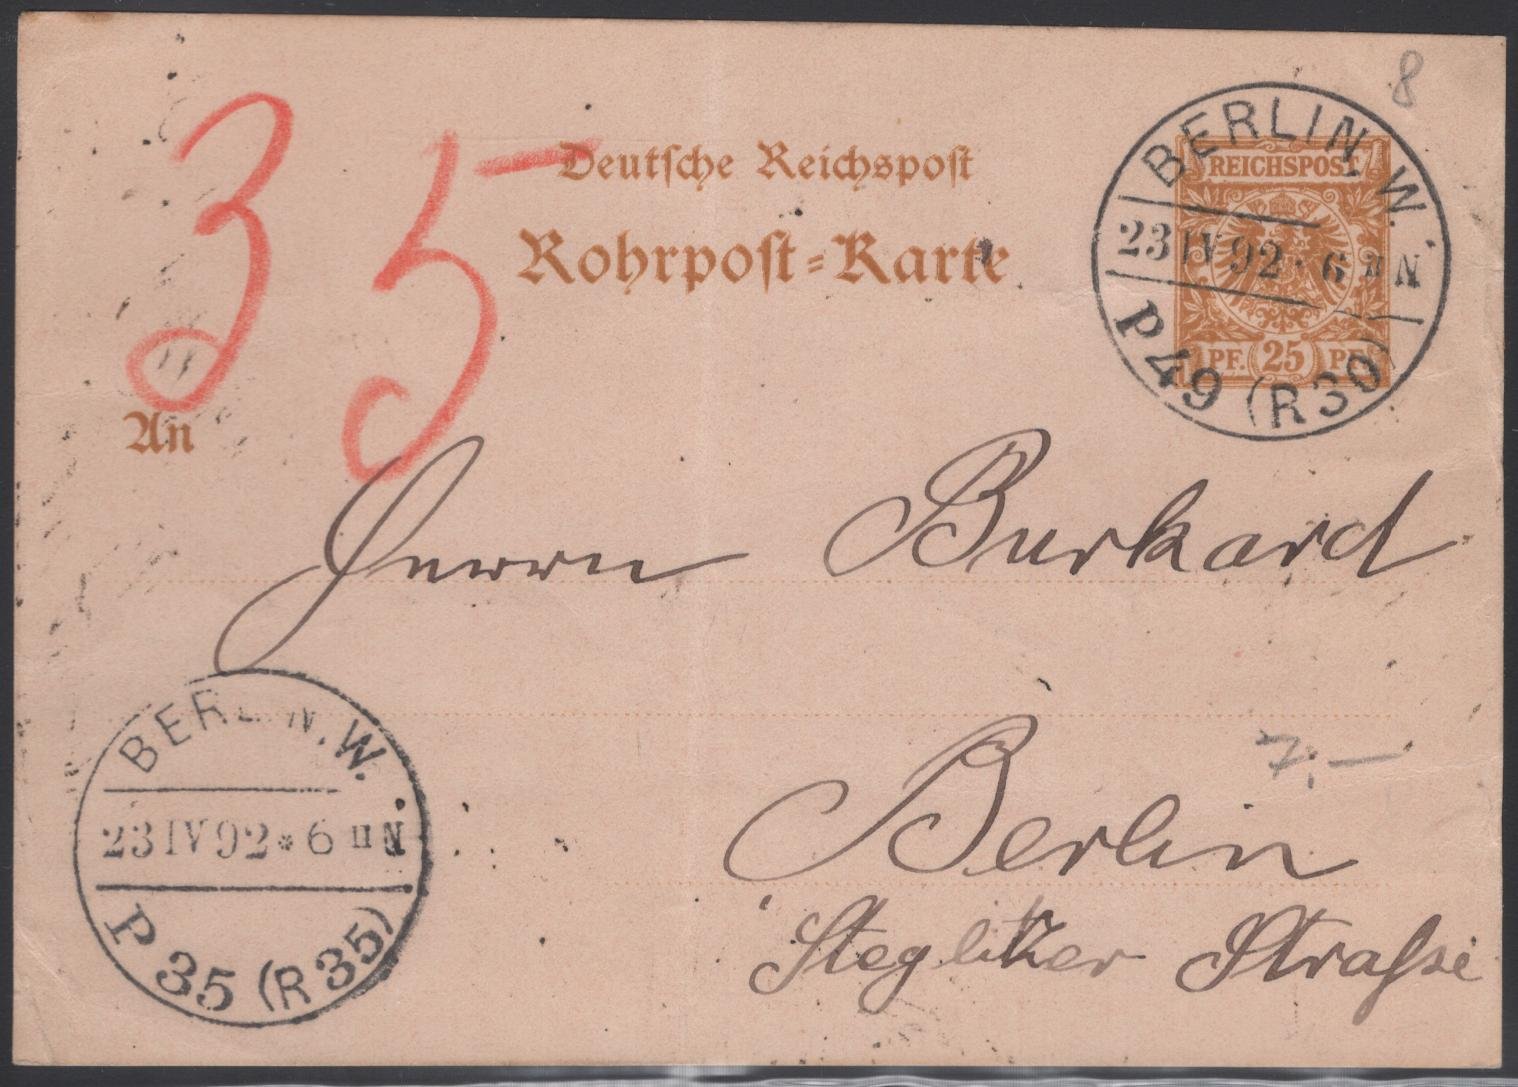 8
35
Deutsche Reichspost
Rohrpost-Karte
REICHSPOST
PF. 25 PF.
BERLIN.W.
23 IV 92 * 6 II N
P 49 (R 30)
An
Herrn Burkard
7,-
Berlin
Steglitzer Straße
BERLIN.W.
23 IV 92 * 6 II N
P 35 (R 35)